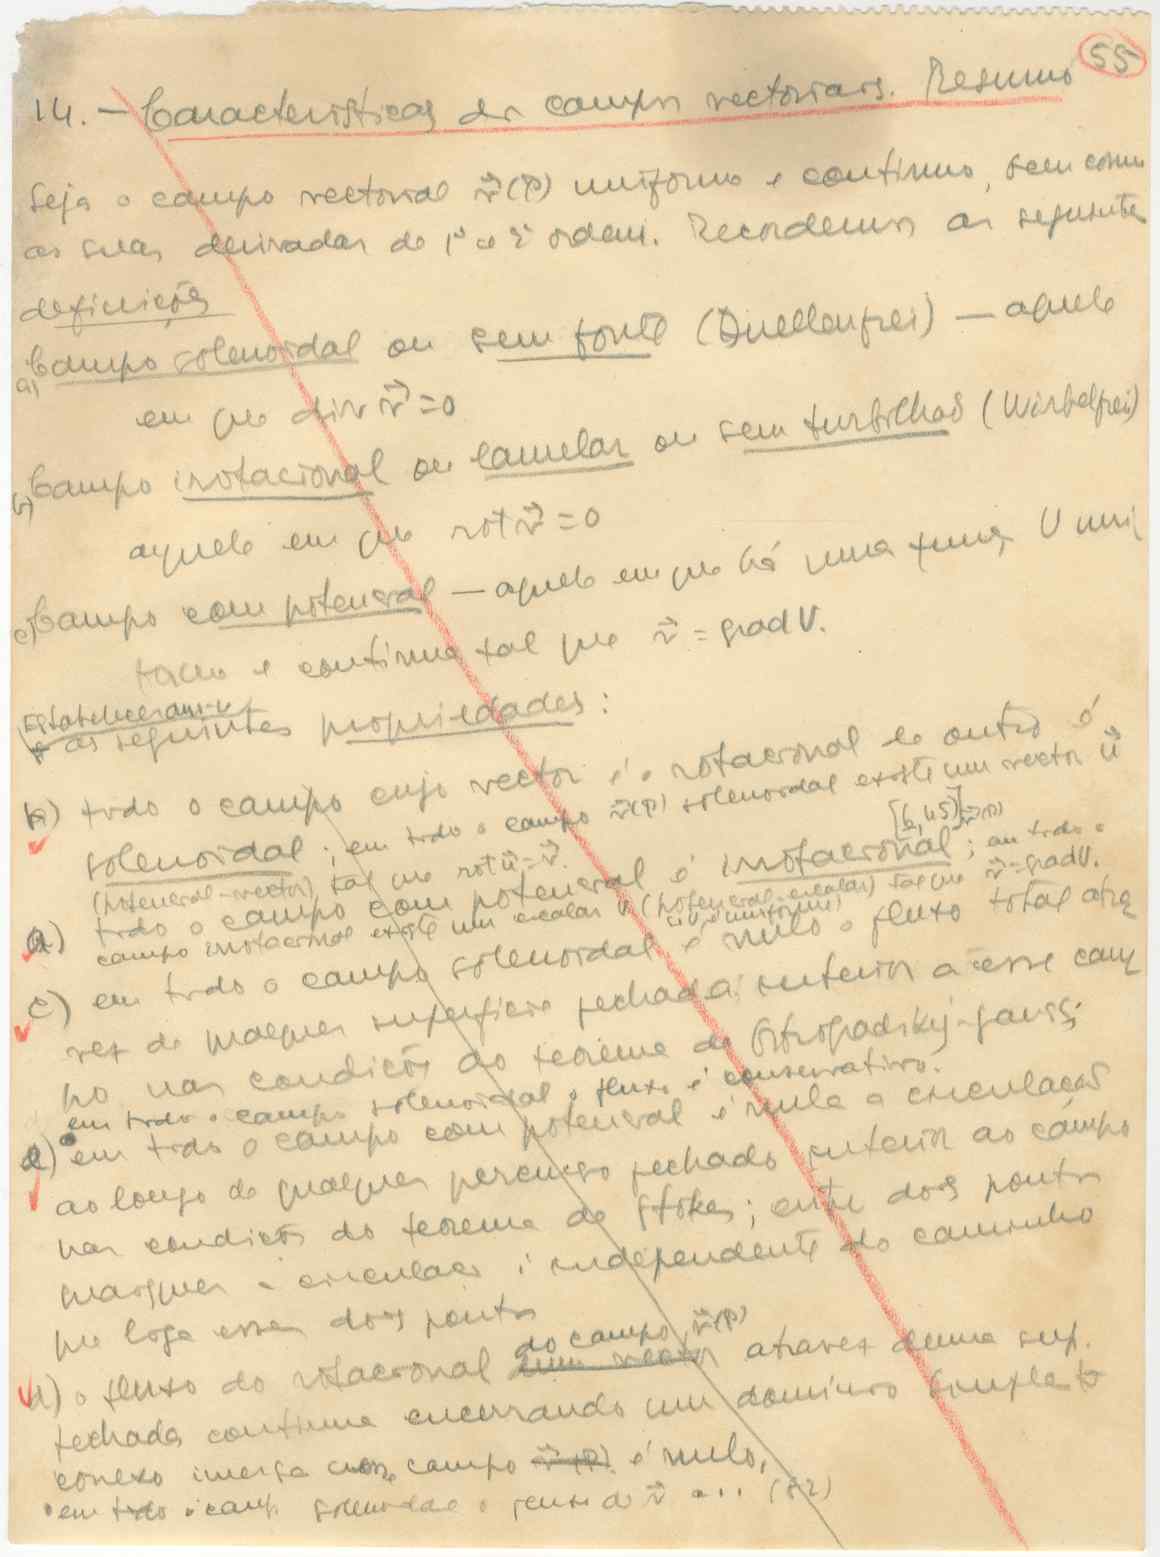 55
14. — Características de campos vectoriais. Resumo
Seja o campo vectorial v⃗(P) uniforme e contínuo, bem como
as suas derivadas de 1ª e 2ª ordem. Recordemos as seguintes
definições
a) Campo solenoidal ou sem fonte (Quellenfrei) — aquele
em que div v⃗ = 0
b) Campo irrotacional ou lamelar ou sem turbilhão (Wirbelfrei)
aquele em que rot v⃗ = 0
c) Campo com potencial — aquele em que há uma função U uni
forme e contínua tal que v⃗ = grad U.
Estabeleceram-se
as seguintes propriedades:
b) todo o campo cujo vector é o rotacional de outro é
solenoidal; em todo o campo v⃗(P) solenoidal existe um vector u⃗
(potencial-vector) tal que rot u⃗ = v⃗. [6,45]
a) todo o campo com potencial é irrotacional; em todo o v⃗(P)
campo irrotacional existe um escalar U (potencial-escalar) tal que v⃗ = grad U.
(U é uniforme)
c) em todo o campo solenoidal é nulo o fluxo total atra
vez de qualquer superfície fechada interior a esse cam
po nas condições do teorema de Ostrogadsky-Gauss;
em todo o campo solenoidal o fluxo é conservativo.
e) em todo o campo com potencial é nula a circulação
ao longo de qualquer percurso fechado interior ao campo
nas condições do teorema de Stokes; entre dois pontos
quaisquer a circulação é independente do caminho
que liga esses dois pontos
do campo v⃗(P)
d) o fluxo do rotacional dum vector atravez duma sup.
fechada contínua encerrando um domínio simples te
conexo imerso no campo v⃗(P) é nulo.
em todo o camp. solenoidal o fluxo de v⃗ ... (82)